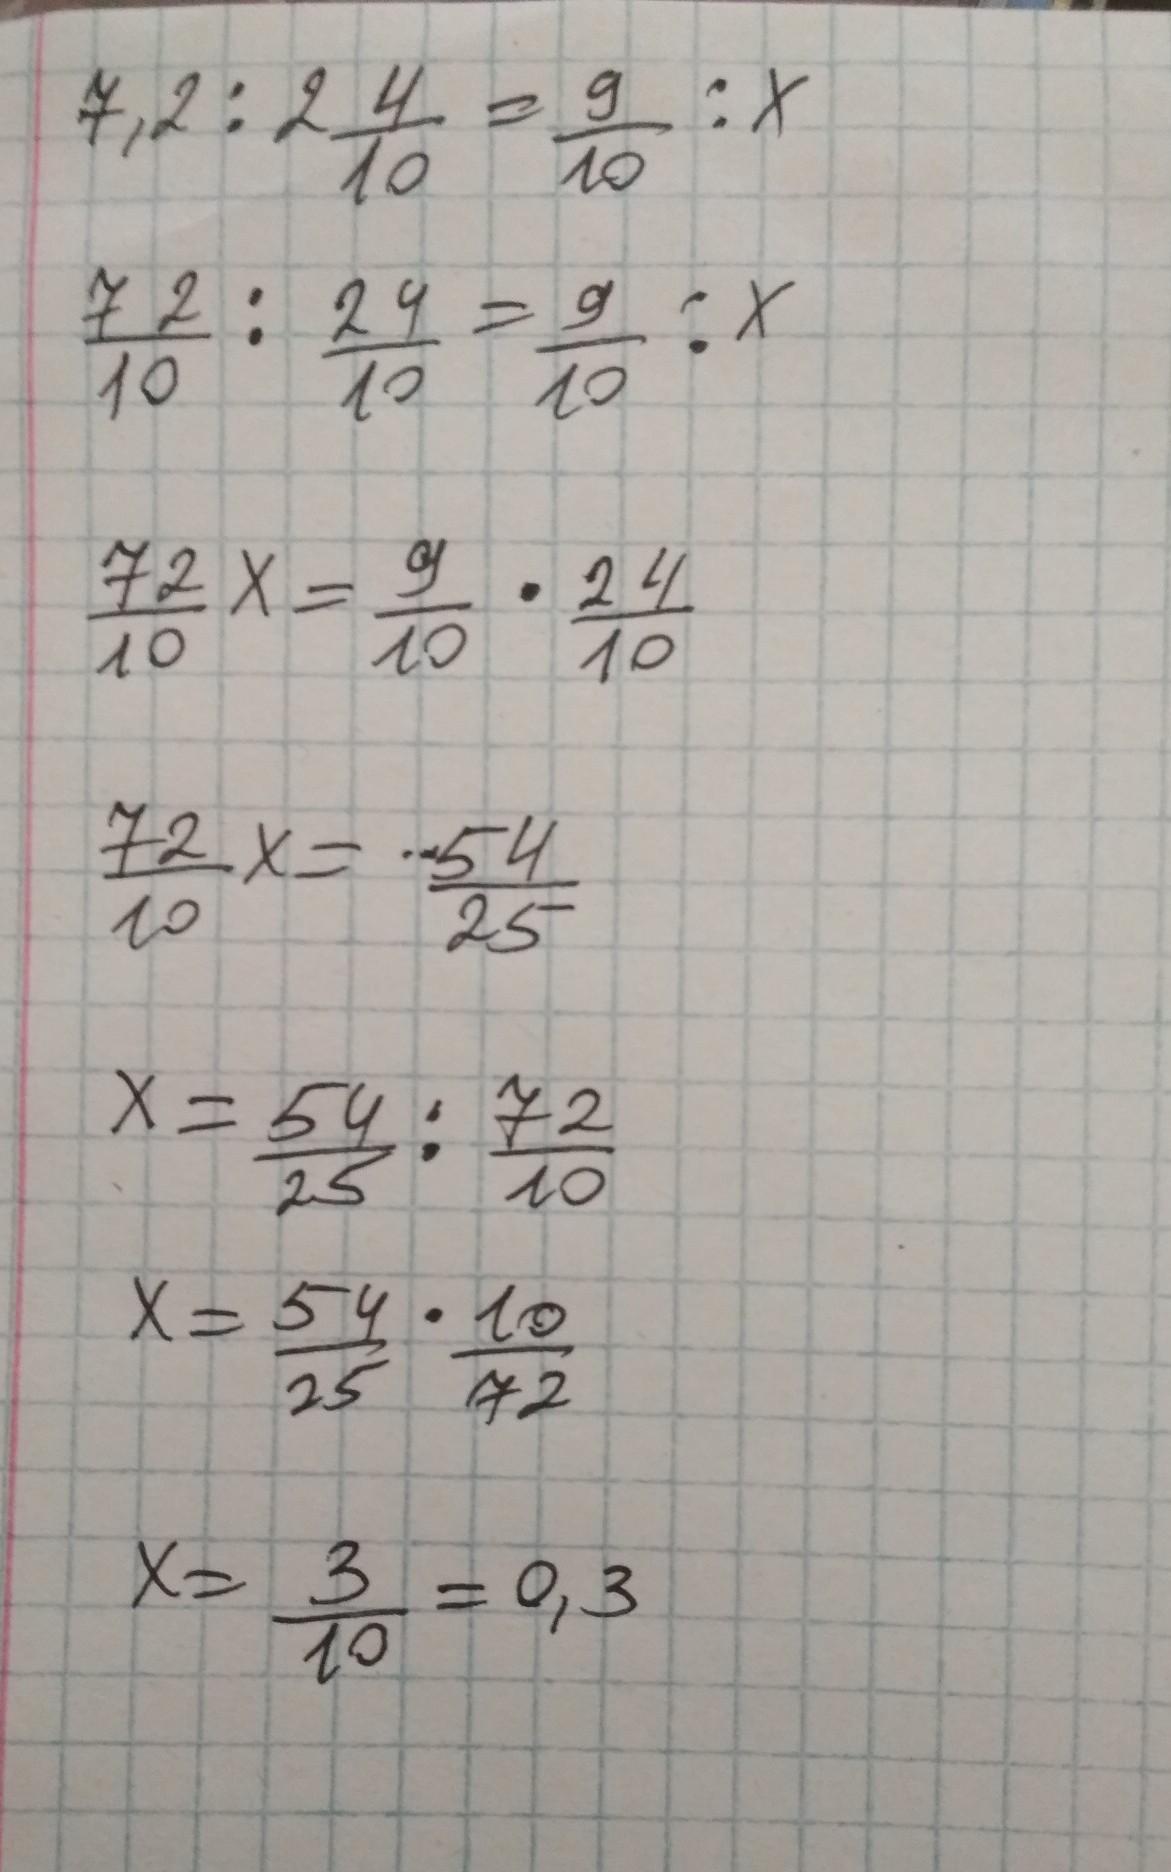 7,2 : 2 4/10 = 9/10 : x
72/10 : 24/10 = 9/10 : x
72/10 x = 9/10 · 24/10
72/10 x = 54/25
x = 54/25 : 72/10
x = 54/25 · 10/72
x = 3/10 = 0,3